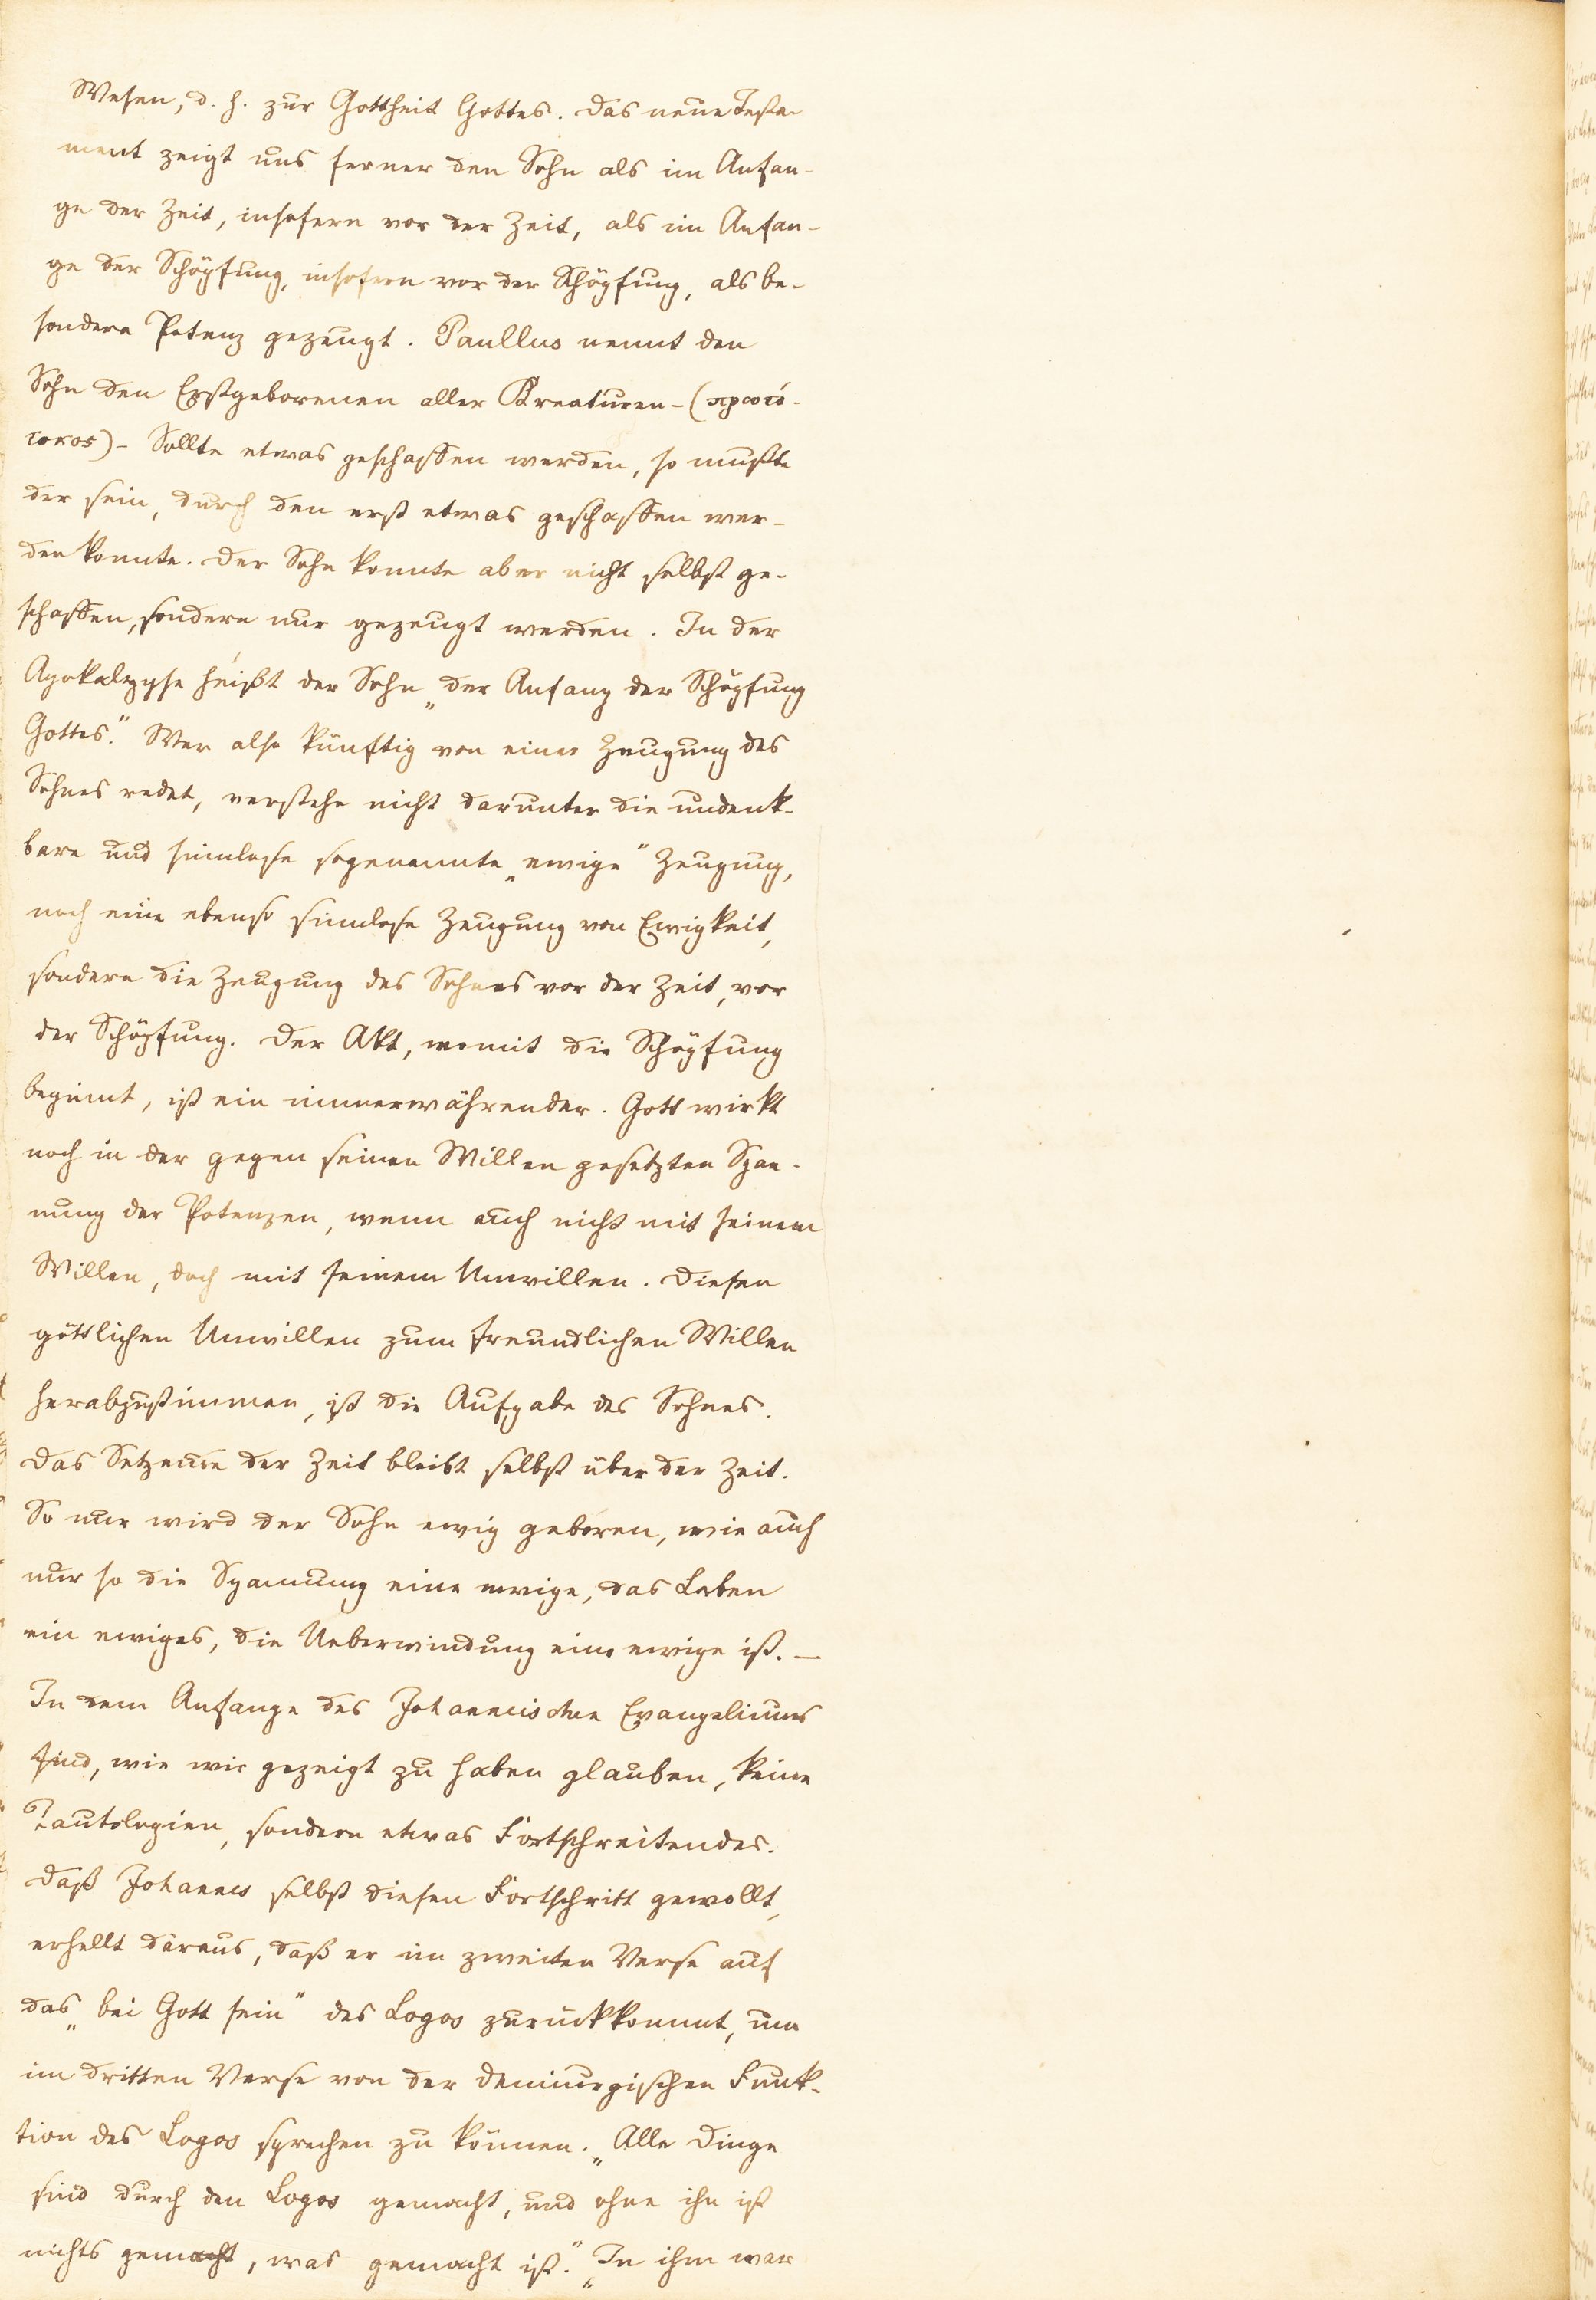 Wesen, d. h. zur Gottheit Gottes. Das neue Testa-
ment zeigt uns ferner den Sohn als im Anfan-
ge der Zeit, insofern vor der Zeit, als im Anfan-
ge der Schöpfung, insofern vor der Schöpfung, als be-
sondere Potenz gezeugt. Paullus nennt den
Sohn den Erstgeborenen aller Kreaturen - (πρωτό-
τοκος) - Sollte etwas geschaffen werden, so mußte
der sein, durch den erst etwas geschaffen wer-
den konnte. Der Sohn konnte aber nicht selbst ge-
schaffen, sondern nur gezeugt werden. In der
Apokalypse heißt der Sohn „der Anfang der Schöpfung
Gottes“. Wer also künftig von einer Zeugung des
Sohnes redet, verstehe nicht darunter die undenk-
bare und sinnlose sogenannte „ewige“ Zeugung,
noch eine ebenso sinnlose Zeugung von Ewigkeit,
sondern die Zeugung des Sohnes vor der Zeit, vor
der Schöpfung. Der Akt, womit die Schöpfung
beginnt, ist ein immerwährender. Gott wirkt
noch in der gegen seinen Willen gesetzten Span-
nung der Potenzen, wenn auch nicht mit seinem
Willen, doch mit seinem Unwillen. Diesen
göttlichen Unwillen zum freundlichen Willen
herabzustimmen, ist die Aufgabe des Sohnes.
Das Setzende der Zeit bleibt selbst über der Zeit.
So nur wird der Sohn ewig geboren, wie auch
nur so die Spannung eine ewige, das Leben
ein ewiges, die Ueberwindung eine ewige ist. —
In dem Anfange des Johanneischen Evangeliums
sind, wie wir gezeigt zu haben glauben, keine
Tautologien, sondern etwas Fortschreitendes.
Daß Johannes selbst diesen Fortschritt gewollt,
erhellt daraus, daß er im zweiten Verse auf
das „bei Gott sein“ des Logos zurückkommt, um
im dritten Verse von der demiurgischen Funk-
tion des Logos sprechen zu können. „Alle Dinge
sind durch den Logos gemacht, und ohne ihn ist
nichts gemacht, was gemacht ist.“ „In ihm war